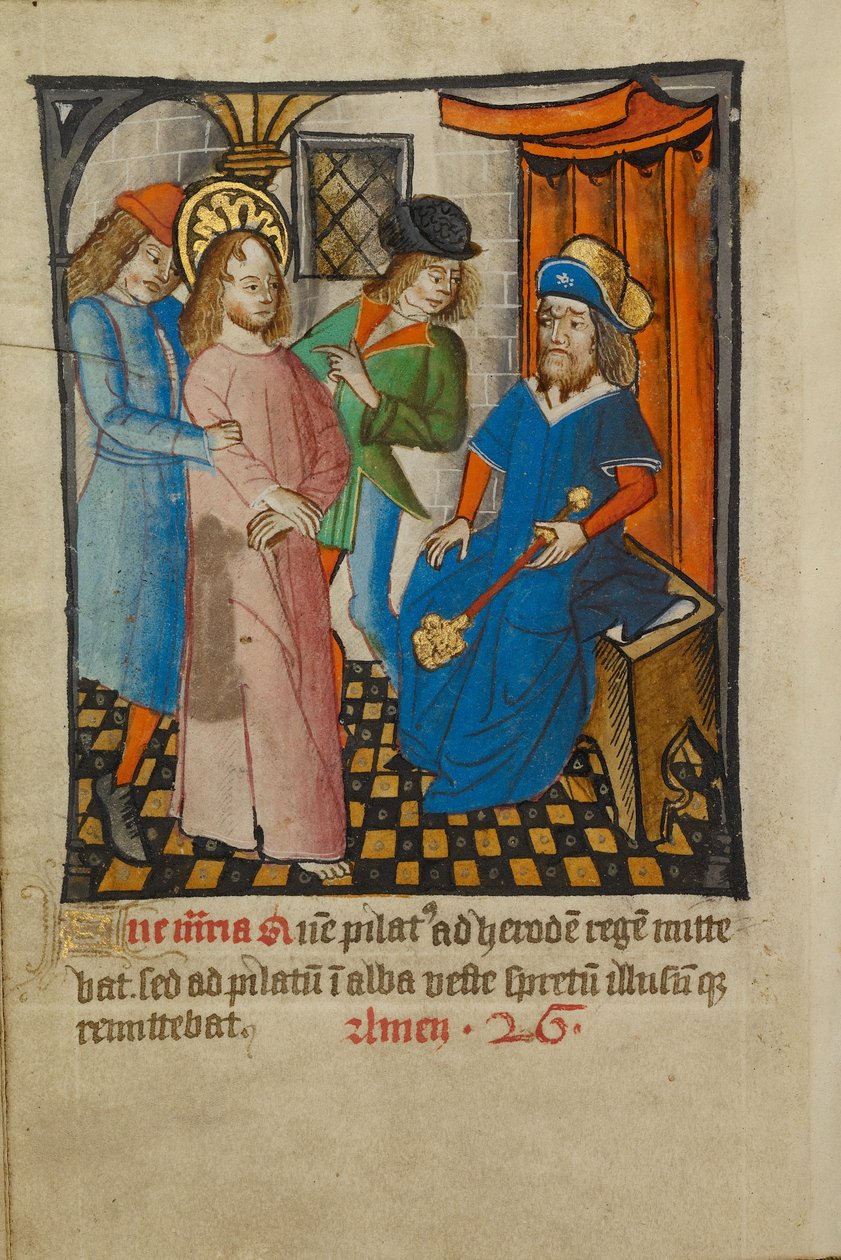 Aue mr̃ia Quē pilatꝰ ad herodē regē mitte
bat. sed ad pilatū ī alba veste spretū illusū qꝫ
remittebat. Amen · 26 ·